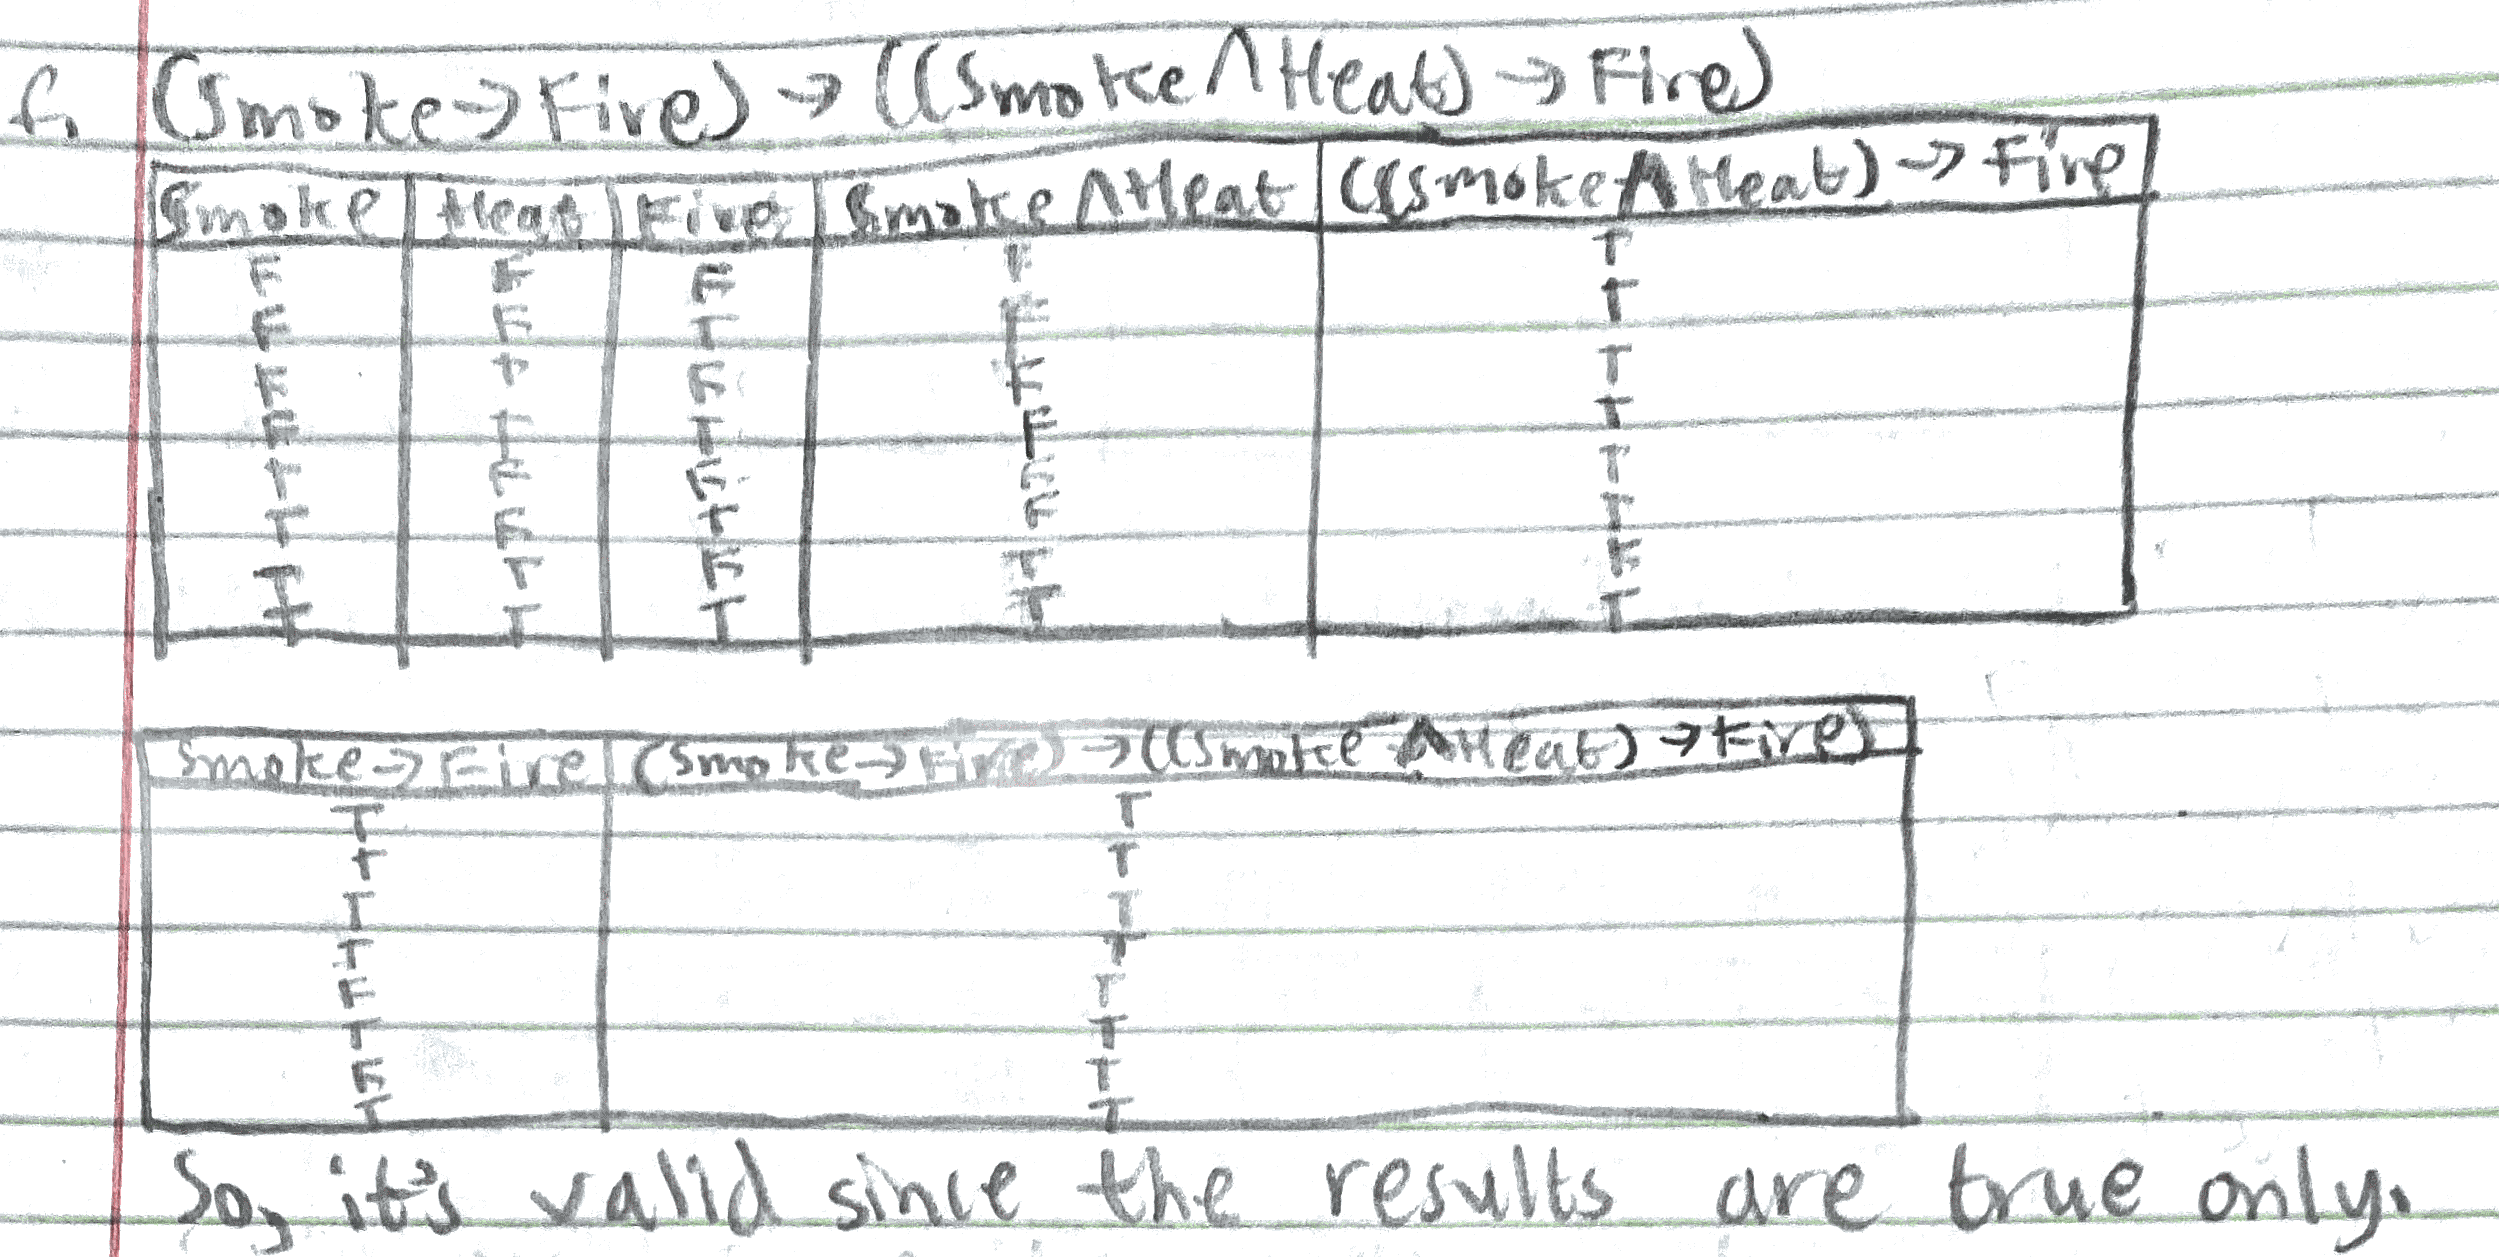 f. (Smoke→Fire) → ((Smoke ∧ Heat) → Fire)
Smoke Heat Fire Smoke ∧ Heat ((Smoke ∧ Heat) → Fire
F F F F T
F F T F T
F T F F T
F T T F T
T F F F T
T F T F T
T T F T F
T T T T T
Smoke→Fire (Smoke→Fire) → ((Smoke ∧ Heat) → Fire)
T T
T T
T T
T T
F T
T T
F T
T T
So, it's valid since the results are true only.